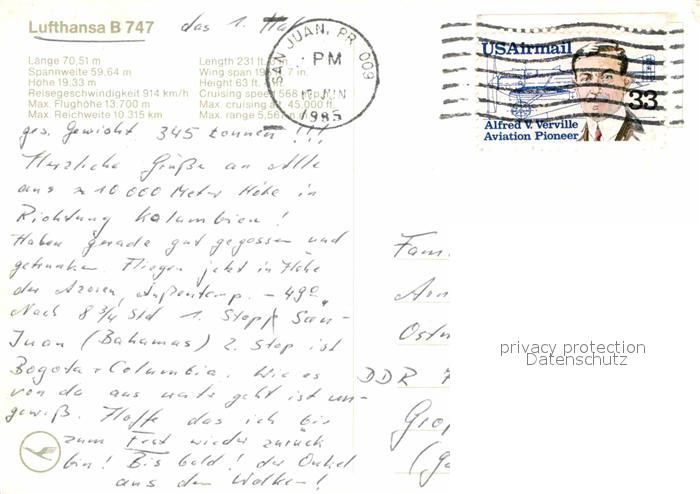 Lufthansa B 747 das 1. Mal
Länge 70,51 m
Spannweite 59,64 m
Höhe 19,33 m
Reisegeschwindigkeit 914 km/h
Max. Flughöhe 13.700 m
Max. Reichweite 10.315 km
Length 231 ft.
Wing span 19 7 in.
Height 63 ft.
Cruising speed 568 mp
Max. cruising alt. 45,000 ft.
Max. range 5,561 m
SAN JUAN, PR 009
PM
JUN
1985
USAirmail
33
Alfred V. Verville
Aviation Pioneer
ges. Gewicht 345 tonnen!!!
Herzliche Grüße an Alle
aus ≈ 10 000 Meter Höhe in
Richtung Kolumbien!
Haben gerade gut gegessen und
getrunken. Fliegen jetzt in Höhe
der Azoren, Außentemp. - 49°,
Nach 8 3/4 Std 1. Stopp San-
Juan (Bahamas) 2. Stop ist
Bogota - Columbia. Wie es
von da aus weite geht ist un-
gewiß. Hoffe das ich bis
zum Fest wieder zurück
bin! Bis bald! der Onkel
aus den Wolken!
Fam.
Ostr
DDR
privacy protection
Datenschutz